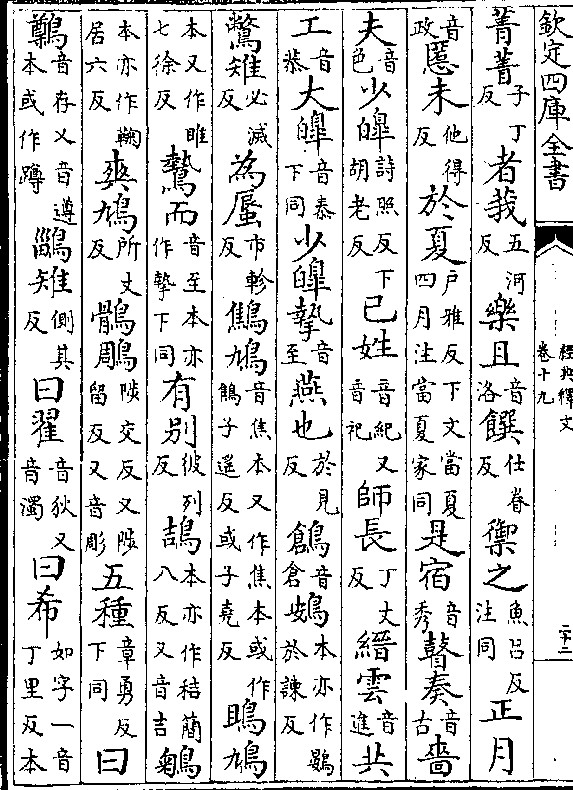 欽定四庫全書 經典釋文 卷十九 二十二
菁菁子丁反者莪五河反樂且音洛饌仕眷反禦之魚呂反注同正月
音政慝未他得反於夏戶雅反下文當夏四月注當夏家同是宿音秀瞽奏音古嗇
夫音色少皥詩照反下胡老反己姓音紀又音祀師長丁丈反縉雲音進共
工音恭大皥音泰下同少皥摯音至燕也於見反鶬音倉鴳本亦作鷃於諫反
鷩雉必滅反為蜃市軫反鷦鳩音焦本又作焦本或作鷦子遥反或子堯反鴡鳩
本又作雎七徐反鷙而音至本亦作摯下同有別彼列反鴶本亦作秸簡八反又音吉鵴
本亦作鞠居六反爽鳩所丈反鶻鵰陟交反又陟留反又音彫五種章勇反下同曰
鷷音存又音遵本或作蹲鶅雉側其反曰翟音狄又音濁曰希如字一音丁里反本